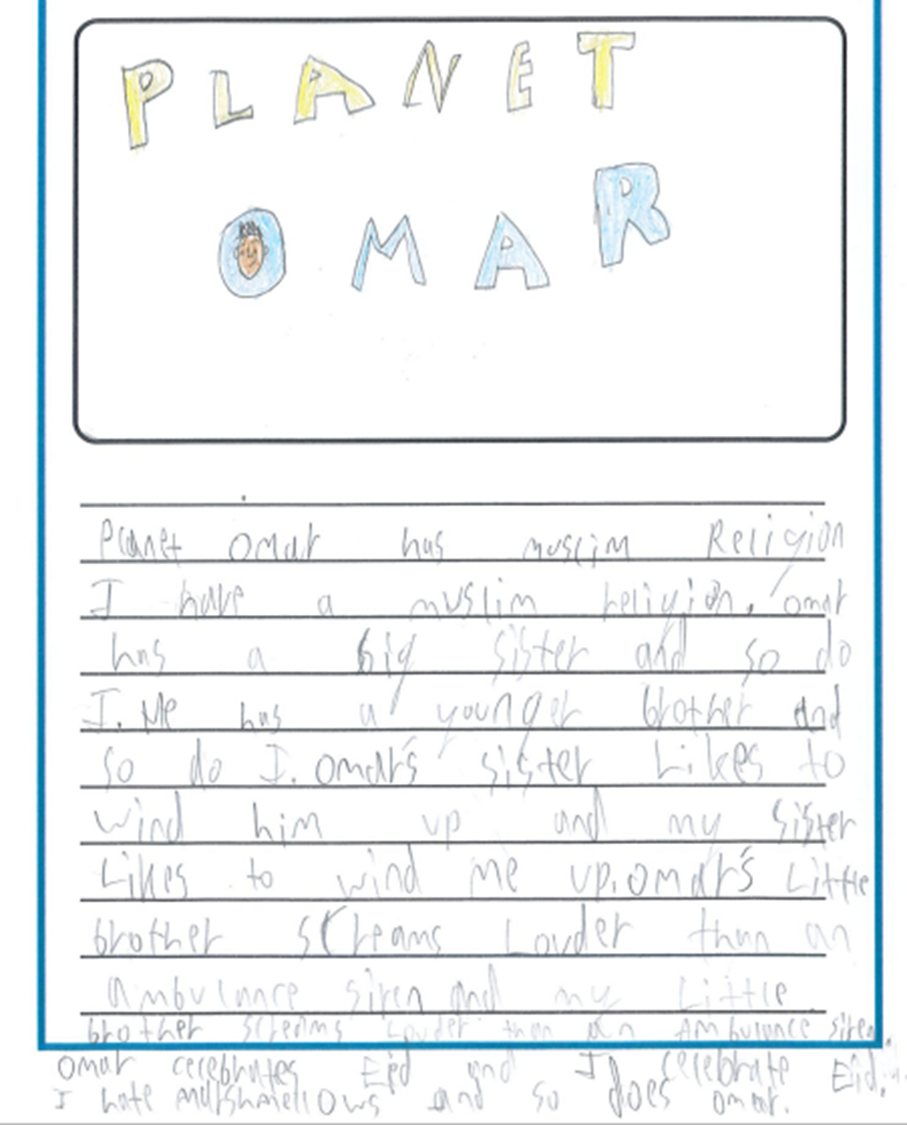 PLANET
OMAR
Planet omar has muslim Religion
I have a muslim religion. omar
has a big sister and so do
I. He has a younger brother and
so do I. omar's sister Likes to
wind him up and my sister
Likes to wind me up. omar's Little
brother screams Louder than an
ambulance siren and my Little
brother screams Louder then an Ambulance siren.
omar cerebrates Eid and I cerebrate Eid.
I hate marshmellows and so does omar.